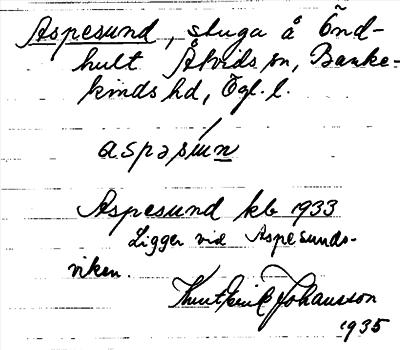 Aspesund, stuga å Önd-
hult Åtvids sn, Banke-
kinds hd, Ögl. l.
aspəsún
Aspesund kb 1933
Ligger vid Aspesunds-
viken.
Knut Erik Johansson
1935